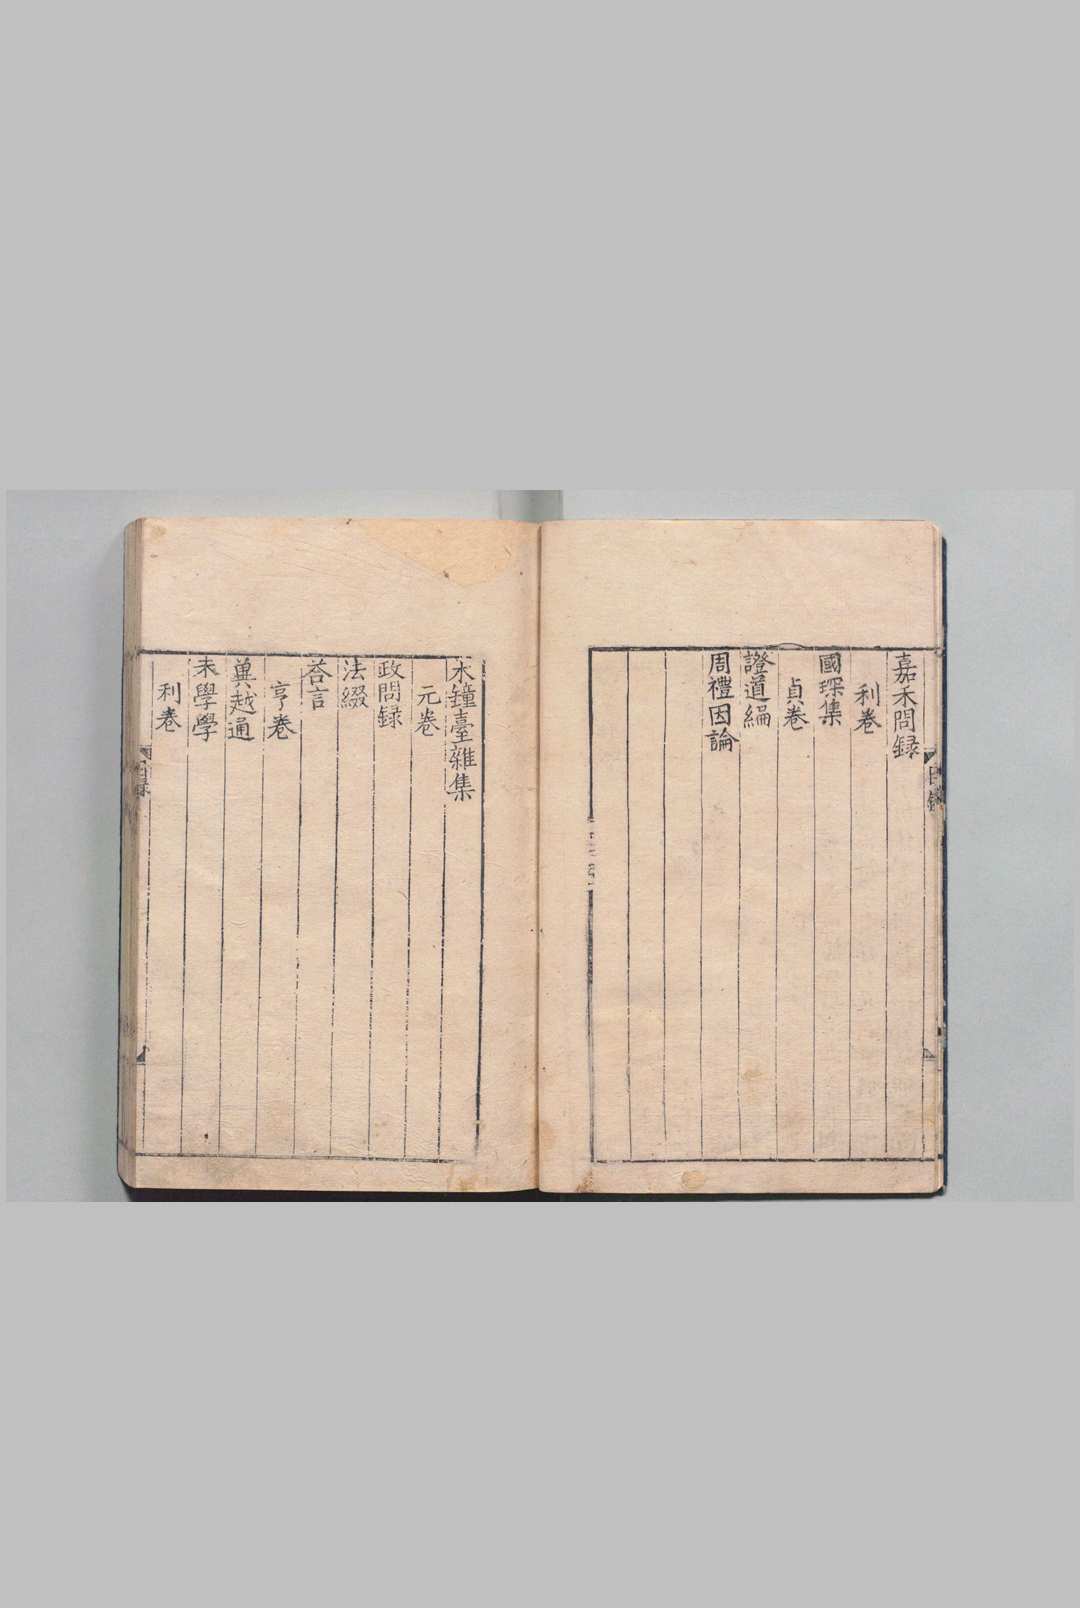 嘉禾問録
利卷
國琛集
貞卷
證道編
周禮因論
目録
木鐘臺雜集
元卷
政問録
法綴
荅言
亨卷
冀越通
未學學
利卷
目録